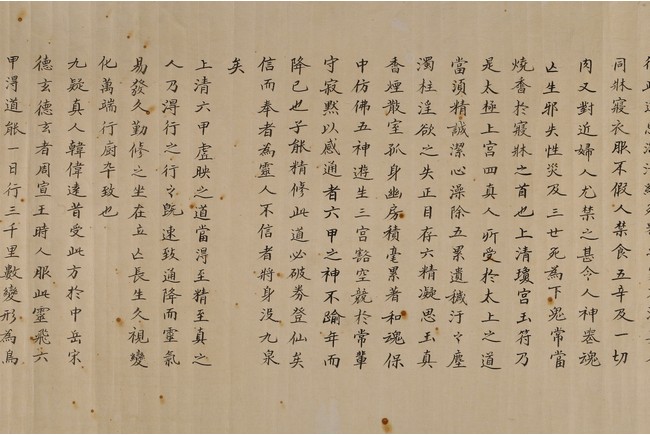 同牀寢衣服不假人禁食五辛及一切
肉又對近婦人尤禁之甚令人神喪魂
亡生邪失性災及三世死為下鬼常當
燒香於寢牀之首也上清瓊宮玉符乃
是太極上宮四真人所受於太上之道
當須精誠潔心澡除五累遺穢汙之塵
濁杜淫欲之失正目存六精凝思玉真
香煙散室孤身幽房積毫累著和魂保
中仿佛五神遊生三宮豁空競於常輩
守寂默以感通者六甲之神不踰年而
降已也子能精修此道必破券登仙矣
信而奉者為靈人不信者將身沒九泉
矣
上清六甲虛映之道當得至精至真之
人乃得行之行之既速致通降而靈氣
易發久勤修之坐在立亡長生久視變
化萬端行廚卒致也
九疑真人韓偉遠昔受此方於中岳宋
德玄德玄者周宣王時人服此靈飛六
甲得道能一日行三千里數變形為鳥